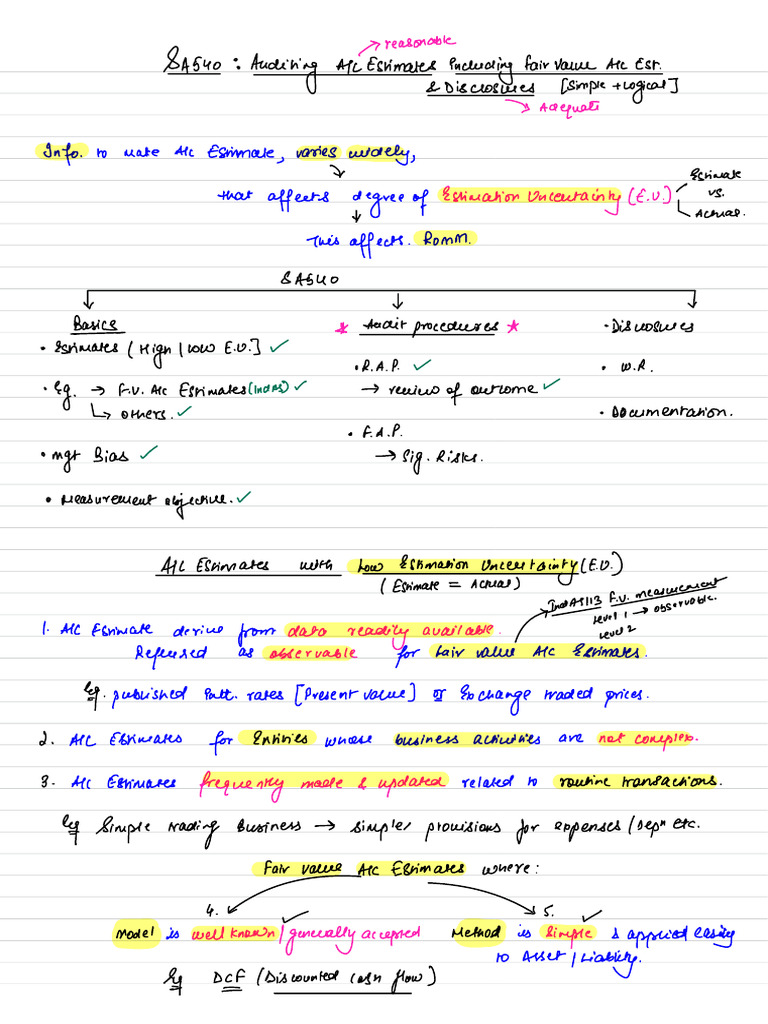 reasonable
SA540 : Auditing A/C Estimates Including Fair Value A/C Est.
& Disclosures [Simple + Logical]
Adequate
Info. to make A/C Estimate, varies widely,
that affects degree of Estimation Uncertainty (E.U.)
Estimate
vs.
Actual.
This affects. ROMM.
SA540
Basics
• Estimates (High | Low E.U.] ✓
• Eg. → F.V. A/C Estimates (IndAS) ✓
↳ others. ✓
• mgt Bias ✓
• Measurement objective. ✓
* Audit procedures *
• R.A.P. ✓
→ review of outcome ✓
• F.A.P.
→ Sig. Risks.
• Disclosures
• W.R.
• Documentation.
A/C Estimates with Low Estimation Uncertainty (E.U.)
(Estimate = Actual)
IndAS113 F.V. measurement
level 1 → observable.
level 2
1. A/C Estimate derive from data readily available.
Referred as observable for Fair value A/C Estimates.
Eg. published Intt. rates [Present value] or Exchange traded prices.
2. A/C Estimates for Entities whose business activities are not complex.
3. A/C Estimates frequency made & updated related to routine transactions.
Eg Simple trading Business → simpler provisions for expenses / Depn etc.
Fair value A/C Estimates where:
4. ✓
Model is well known / generally accepted
Eg DCF (Discounted cash flow)
5. ✓
Method is simple & applied easily
to Asset / Liability.